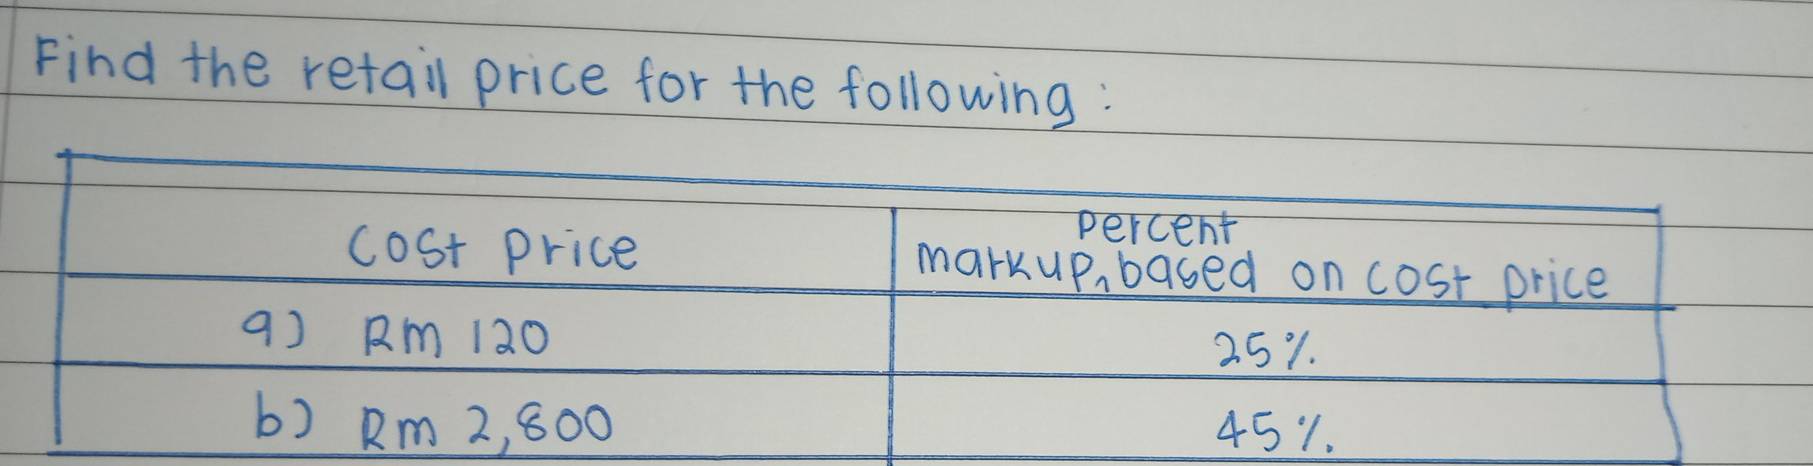 Find the retail price for the following:
Cost price
percent
markup, based on cost price
a) RM 120
25%
b) RM 2,800
45%